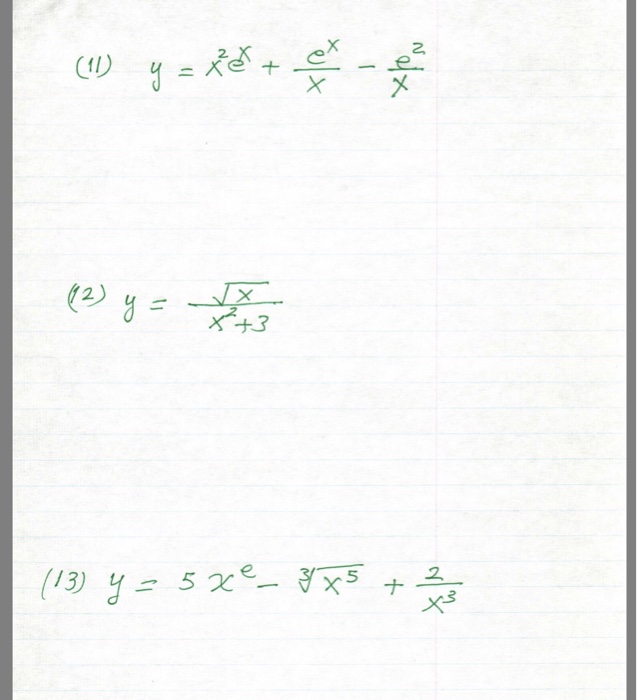 (11) y = x²eˣ + eˣ/x - e²/x
(12) y = √x/(x²+3)
(13) y = 5xᵉ - ∛x⁵ + 2/x³